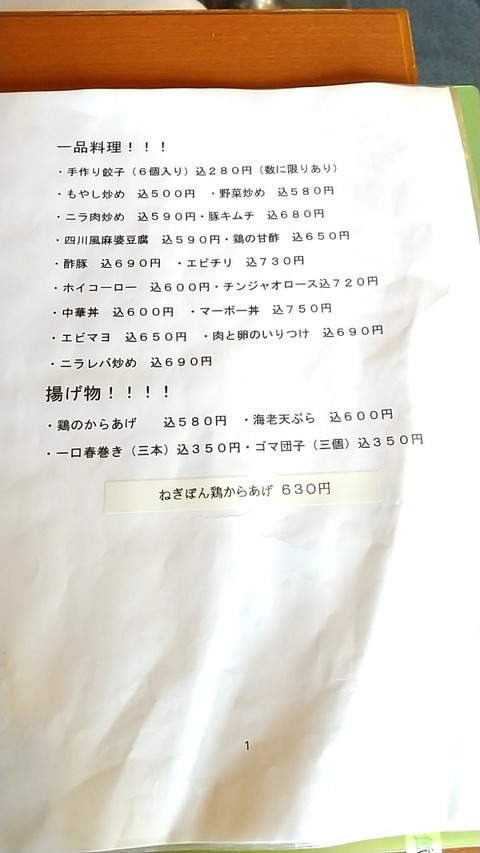 一品料理！！！
・手作り餃子（６個入り）込２８０円（数に限りあり）
・もやし炒め　込５００円　・野菜炒め　込５８０円
・ニラ肉炒め　込５９０円・豚キムチ　込６８０円
・四川風麻婆豆腐　込５９０円・鶏の甘酢　込６５０円
・酢豚　込６９０円　・エビチリ　込７３０円
・ホイコーロー　込６００円・チンジャオロース込７２０円
・中華丼　込６００円　・マーボー丼　込７５０円
・エビマヨ　込６５０円　・肉と卵のいりつけ　込６９０円
・ニラレバ炒め　込６９０円
揚げ物！！！！
・鶏のからあげ　　込５８０円　・海老天ぷら　込６００円
・一口春巻き（三本）込３５０円・ゴマ団子（三個）込３５０円
ねぎぽん鶏からあげ ６３０円
1